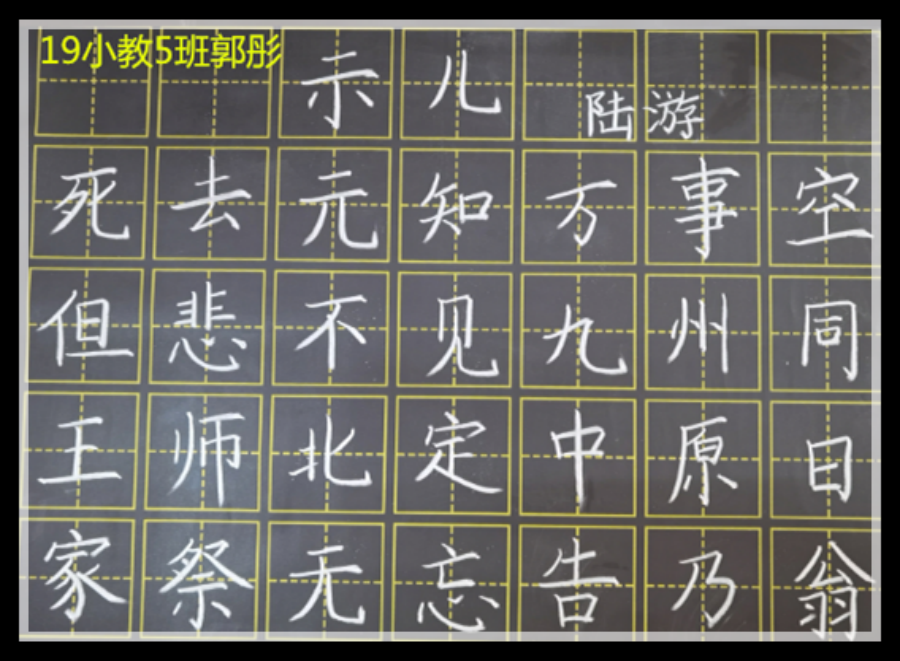 19小教5班郭彤
示儿
陆游
死去元知万事空
但悲不见九州同
王师北定中原日
家祭无忘告乃翁